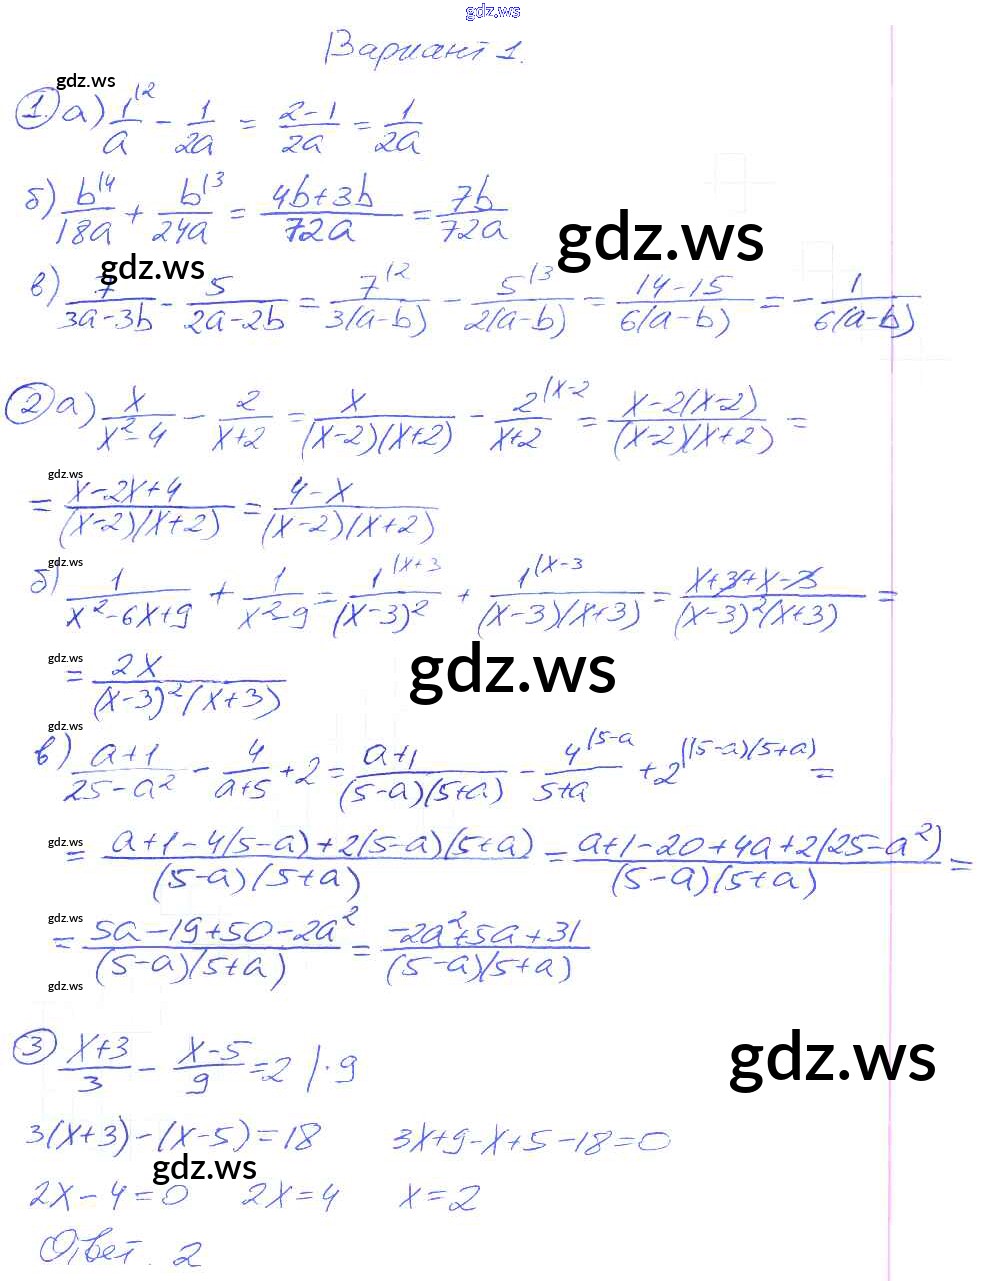 gdz.ws
Вариант 1.
gdz.ws
1. а) 1/a ^(2 - 1/2a = (2-1)/2a = 1/2a
б) b/18a ^(4 + b/24a ^(3 = (4b+3b)/72a = 7b/72a
gdz.ws
gdz.ws
в) 7/(3a-3b) - 5/(2a-2b) = 7/3(a-b) ^(2 - 5/2(a-b) ^(3 = (14-15)/6(a-b) = - 1/6(a-b)
2 а) x/(x²-4) - 2/(x+2) = x/(x-2)(x+2) - 2/(x+2) ^(x-2 = (x-2(x-2))/(x-2)(x+2) =
gdz.ws
= (x-2x+4)/(x-2)(x+2) = (4-x)/(x-2)(x+2)
gdz.ws
б) 1/(x²-6x+9) + 1/(x²-9) = 1/(x-3)² ^(x+3 + 1/(x-3)(x+3) ^(x-3 = (x+3+x-3)/(x-3)²(x+3) =
gdz.ws
gdz.ws
= 2x/(x-3)²(x+3)
gdz.ws
в) (a+1)/(25-a²) - 4/(a+5) + 2 = (a+1)/(5-a)(5+a) - 4/(5+a) ^(5-a + 2 ^((5-a)(5+a) =
gdz.ws
= (a+1-4(5-a)+2(5-a)(5+a))/(5-a)(5+a) = (a+1-20+4a+2(25-a²))/(5-a)(5+a) =
gdz.ws
= (5a-19+50-2a²)/(5-a)(5+a) = (-2a²+5a+31)/(5-a)(5+a)
gdz.ws
3 (x+3)/3 - (x-5)/9 = 2 |·9
gdz.ws
3(x+3)-(x-5)=18 3x+9-x+5-18=0
gdz.ws
2x-4=0 2x=4 x=2
Ответ. 2